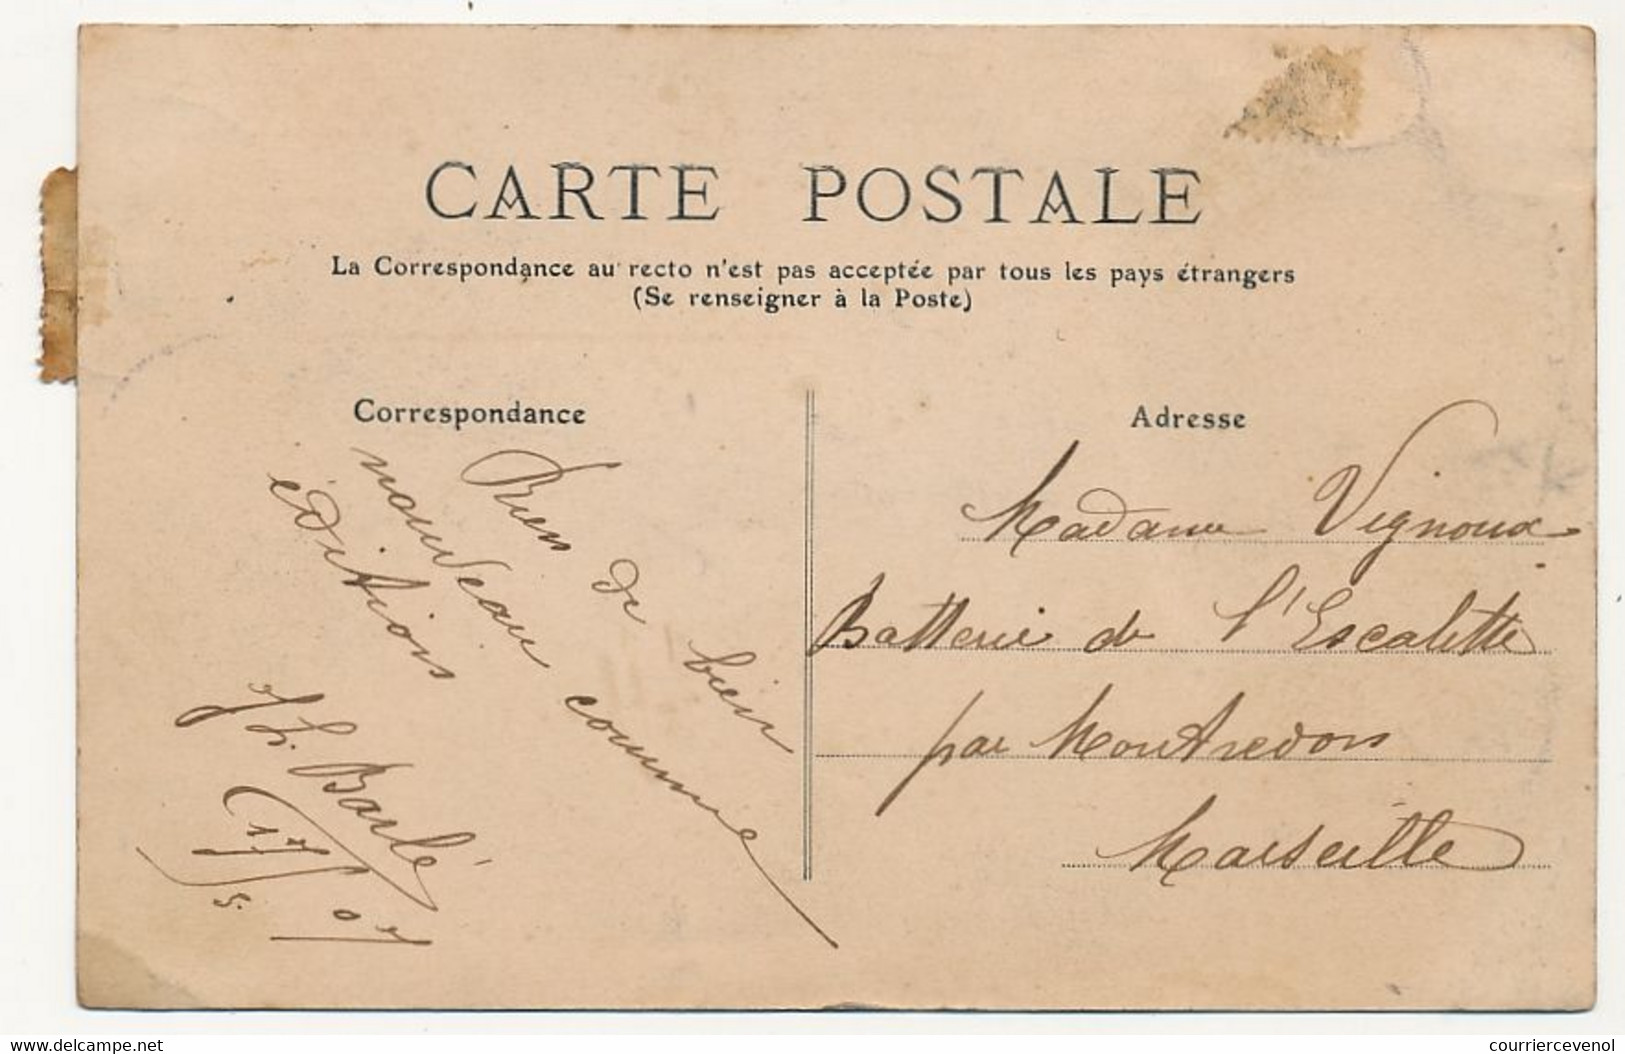 CARTE POSTALE
La Correspondance au recto n'est pas acceptée par tous les pays étrangers
(Se renseigner à la Poste)
Correspondance
Rien de bien
nouveau comme
éditions
L. Barlé
17/5/07
Adresse
Madame Vignoux
Batterie de l'Escalette
par Montredon
Marseille
www.delcampe.net
courriercevenol